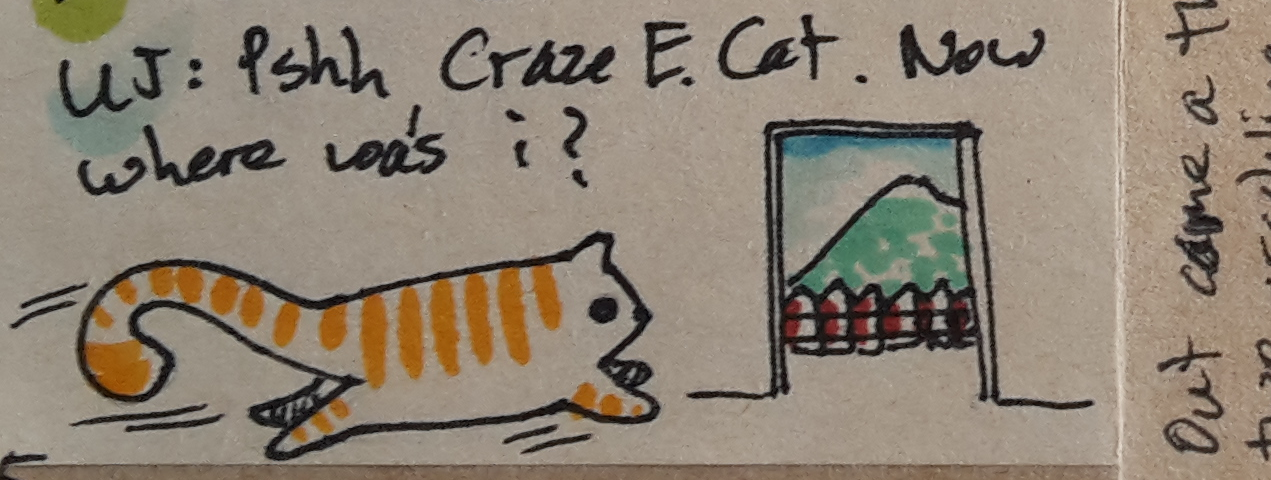 UJ: Pshh Craze E. Cat. Now
where was i?
Out came a